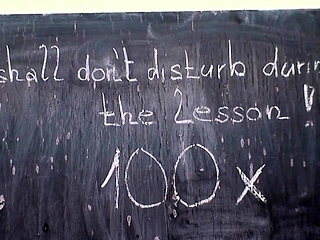 shall don't disturb durin
the Lesson!
100 x